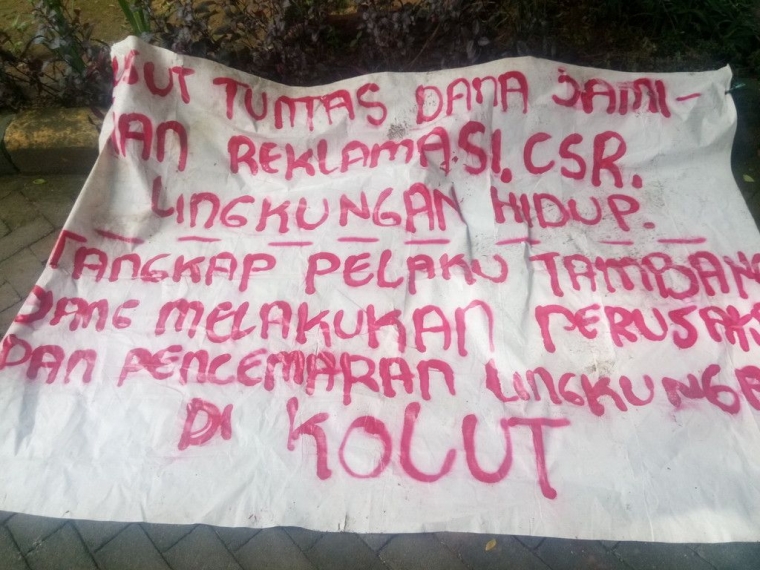 USUT TUNTAS DANA JAMI-
NAN REKLAMASI, CSR,
LINGKUNGAN HIDUP.
TANGKAP PELAKU TAMBANG
YANG MELAKUKAN PERUSAK
DAN PENCEMARAN LINGKUNGA
DI KOLUT